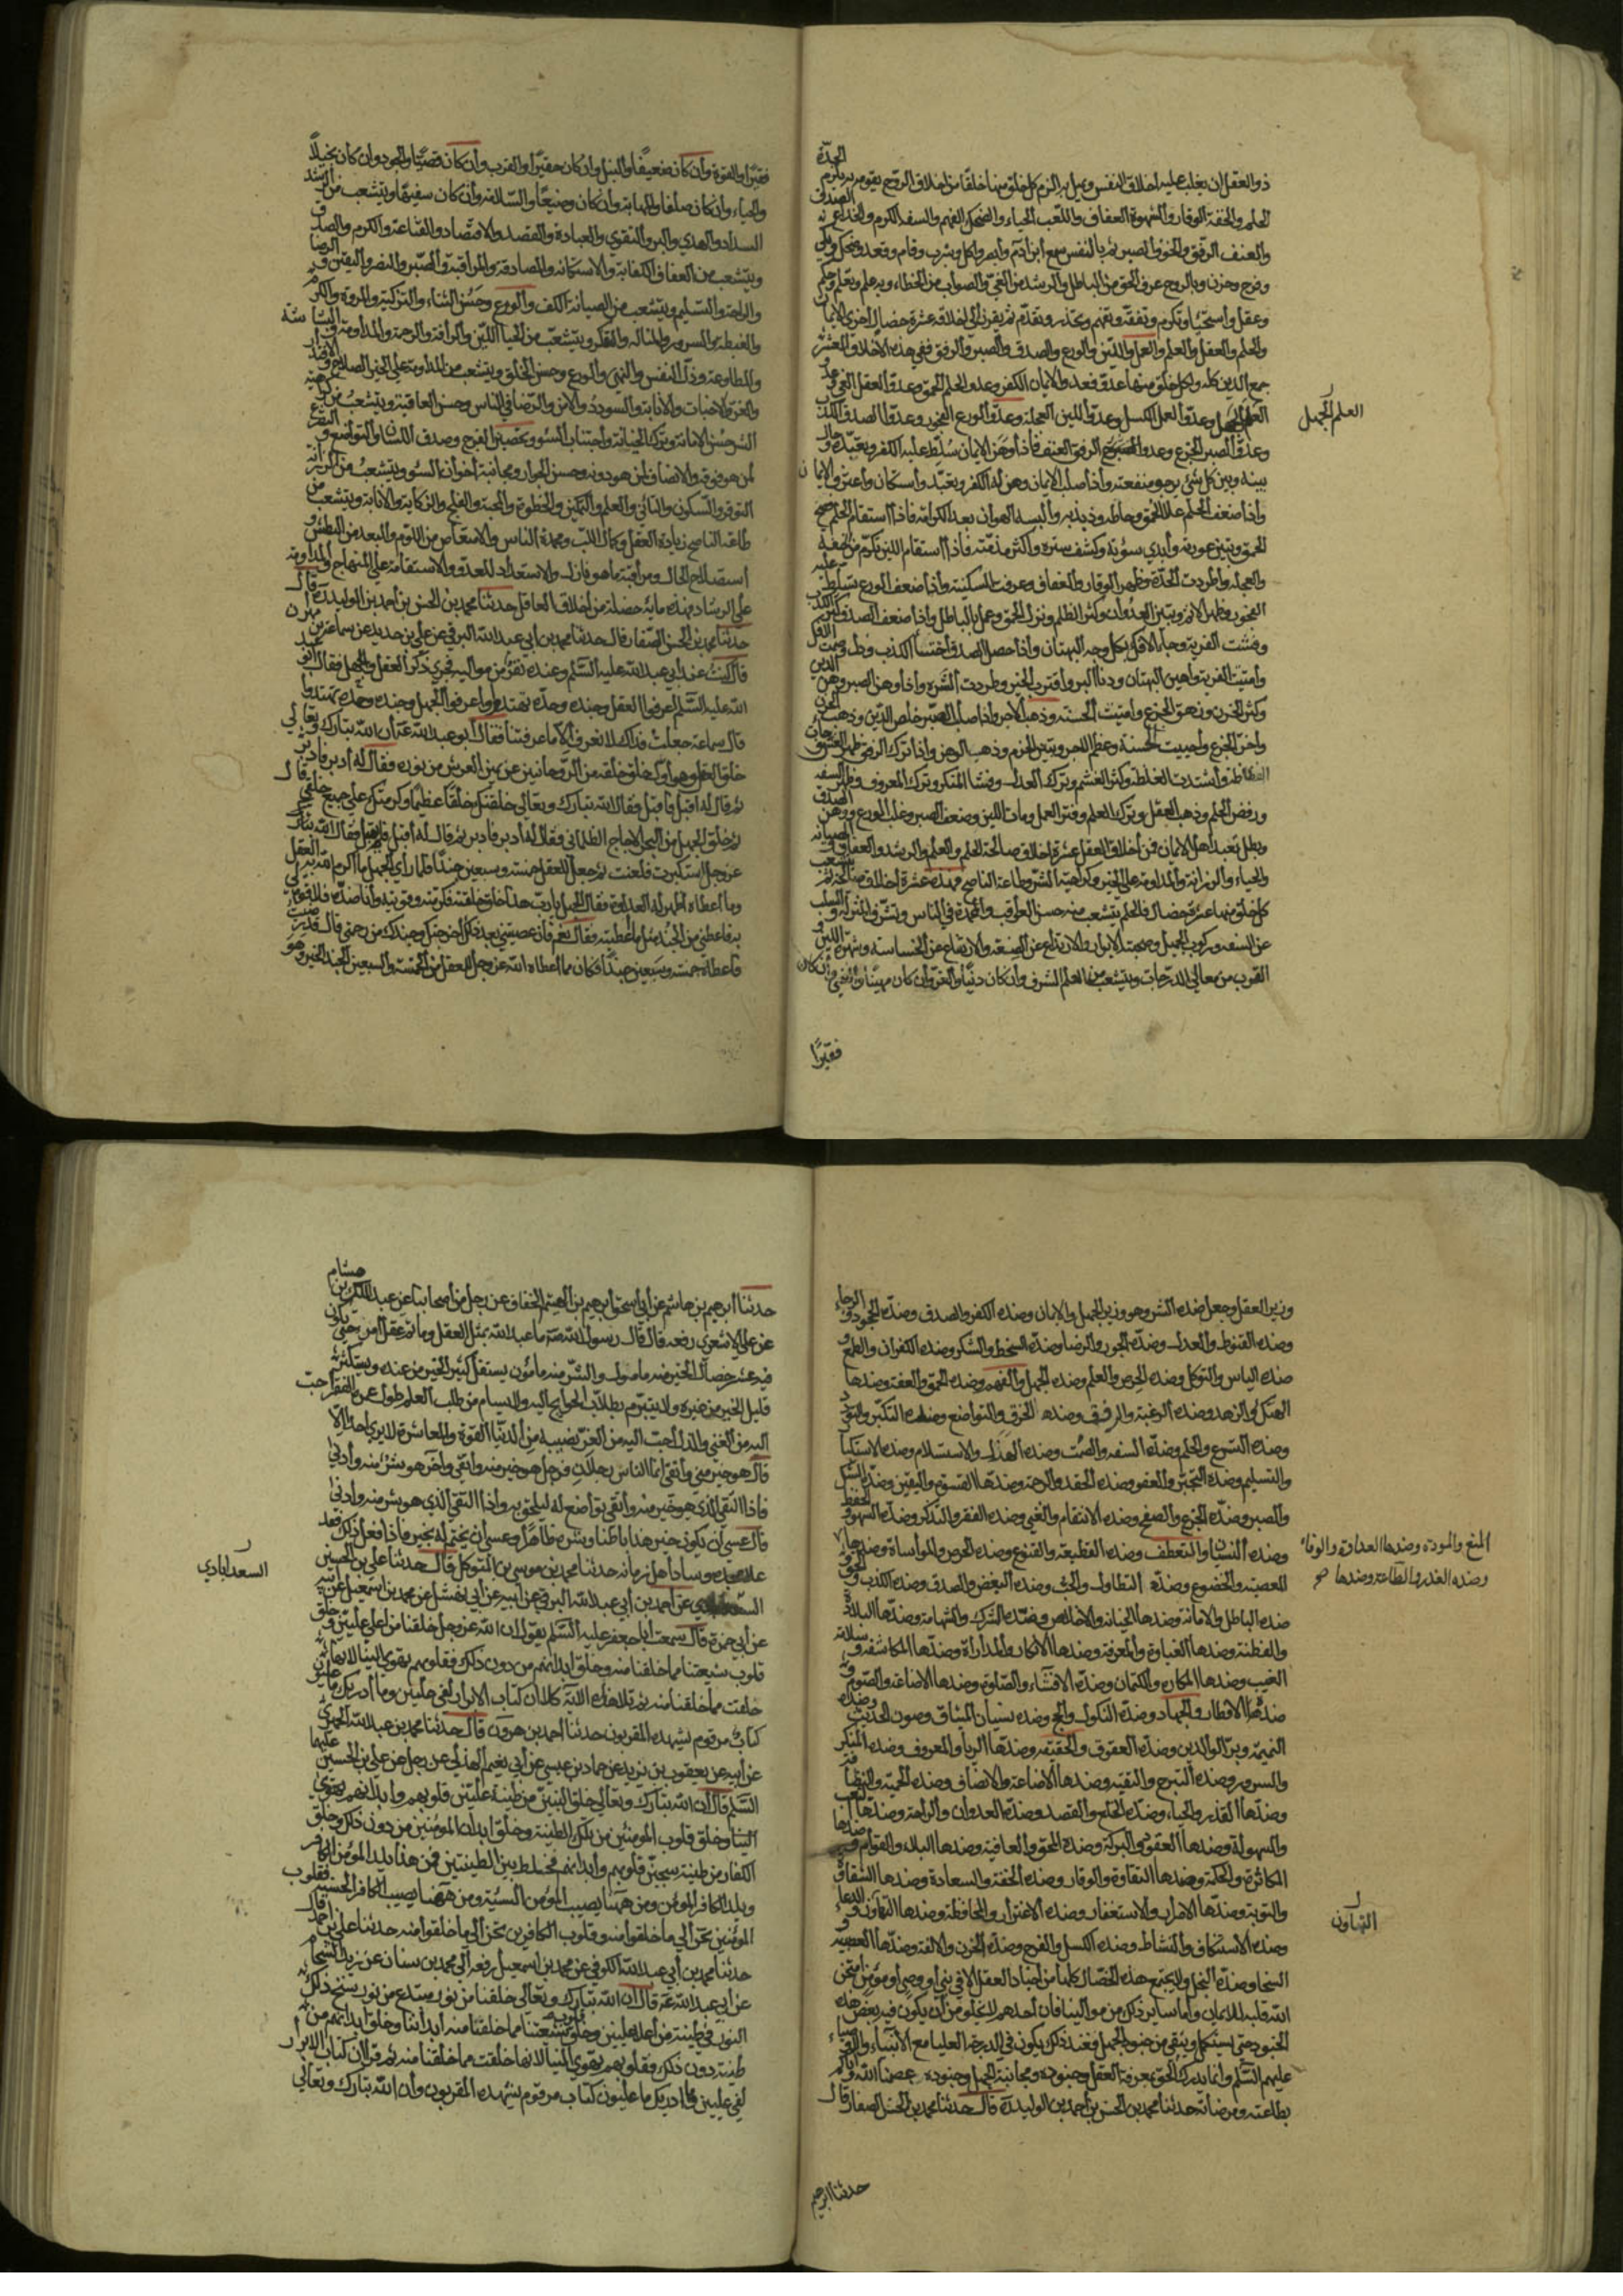 الحدة
ذو العقل ان يغلب عليه اخلاق النفس ويميل به الزم كل خلق منها خلقا من اخلاق الروح يقومه به يلزم
الحلم والخفة الوقار والشهوة العفاف واللعب الحياء والضحك الفهم والسفه الكرم والخداع الصدق
والعنف الرفق والخوف الصبر ثم بالنفس سمع ابن ادم وابصر واكل وشرب وقام وقعد وضحك وبكى
وفرح وحزن وبالروح عرف الحق من الباطل والرشد من الغي والصواب من الخطاء وبه علم وتعلم وحكم
وعقل واستحيا وتكرم وتفقه وتفهم وتحذر وتقدم ثم يقرن الى اخلاقه عشرة خصال اخرى الايمان
والحلم والعقل والعلم والعمل واللين والورع والصدق والصبر والرفق ففي هذه الاخلاق العشر
جمع الدين كله ولكل خلق منها عدو فعدو الايمان الكفر وعدو الحلم الحمق وعدو العقل الغي وعدو
العلم الجهل وعدو العمل الكسل وعدو اللين العجلة وعدو الورع الفجور وعدو الصدق الكذب
العلم الجهل
وعدو الصبر الجزع وعدو الرفق العنف فاذا وهن الايمان سلط عليه الكفر وتعبده وحال
بينه وبين كل شئ يرجو منفعته واذا صلب الايمان وهن له الكفر وتعبد واستكان واعترف الايمان
واذا ضعف الحلم علا الحمق وحاطه وذبذبه والبسه الهوان بعد الكرامة فاذا استقام الحلم فضح
الحمق وتبين عورته وابدى سوءته وكشف ستره واكثر مذمته فاذا استقام اللين تكرم من الخفة
والعجلة واطردت الحدة وظهر الوقار والعفاف وعرفت السكينة واذا ضعف الورع تسلط عليه
الفجور وظهر الاثم وتبين العدوان وكثر الظلم ونزل الحمق وعمل بالباطل واذا ضعف الصدق كثر الكذب
وفشت الفرية وجاء الافك بكل وجه البهتان واذا حصل الصدق اختسأ الكذب وذل وصمت الافك
واميتت الفرية واهين البهتان ودنا البر واقترب الخير وطردت الشره واذا وهن الصبر وهن الدين
وكثر الحزن وزهق الجزع واميتت الحسنة وذهب الاجر واذا صلب الصبر خلص الدين وذهب الحزن
واخر الجزع واحييت الحسنة وعظم الاجر وتبين الحزم وذهب الوهن واذا ترك الرفق ظهر الغش وجاءت
الفظاظة واشتدت الغلظة وكثر الغشم وترك العدل وفشا المنكر وترك المعروف وظهر السفه
ورفض الحلم وذهب العقل وترك العلم وفتر العمل ومات اللين وضعف الصبر وغلب الورع ووهن الصدق
وبطل تعبد اهل الايمان فمن اخلاق العقل عشرة اخلاق صالحة الحلم والعلم والرشد والعفاف والصيانة
والحياء والرزانة والمداومة على الخير وكراهية الشر وطاعة الناصح فهذه عشرة اخلاق صالحة ثم يتشعب
كل خلق منها عشرة خصال فالحلم يتشعب منه حسن العواقب والمحمدة في الناس وتشرف المنزلة والسلب
عن السفه وركوب الجميل وصحبة الابرار والارتداع عن الضيعة والارتفاع عن الخساسة وشهرة اللين و
القرب من معالي الدرجات ويتشعب من العلم الشرف وان كان دنيا والعز وان كان مهينا والغنى وان كان
فقيرا
فقيرا والقوة وان كان ضعيفا والنبل وان كان حقيرا والقرب وان كان قصيا والجود وان كان بخيلا
والحياء وان كان صلفا والمهابة وان كان وضيعا والسلامة وان كان سفيها ويتشعب من الرشد
السداد والهدى والبر والتقوى والعبادة والقصد والاقتصاد والقناعة والكرم والصدق
ويتشعب من العفاف الكفاية والاستكانة والمصادقة والمراقبة والصبر والنصر واليقين والرضا
والراحة والتسليم ويتشعب من الصيانة الكف والورع وحسن الثناء والتزكية والمروة والكرم
والغبطة والسرور والمنالة والتفكر ويتشعب من الحياء اللين والرأفة والرحمة والمداومة والبشاشة
والمطاوعة وذل النفس والنهى والورع وحسن الخلق ويتشعب من المداومة على الخير الصلاح والاقتدار
والعز والاخبات والانابة والسودد والامن والرضا في الناس وحسن العاقبة ويتشعب من كراهية
الشر حسن الامانة وترك الخيانة واجتناب السوء وتحصين الفرج وصدق اللسان والتواضع والتضرع
لمن هو فوقه والانصاف لمن هو دونه وحسن الجوار ومجانبة اخوان السوء ويتشعب من الرزانة
التوقر والسكون والتاني والعلم والتمكين والحظوة والمحبة والفلج والزكاية والانابة ويتشعب من
طاعة الناصح زيادة العقل وكمال اللب ومحمدة الناس والامتعاض من اللوم والبعد من البطش و
استصلاح الحال ومراقبة ما هو نازل والاستعداد للعدو والاستقامة على المنهاج والمداومة
على الرشاد فهذه ماية خصلة من اخلاق العاقل حدثنا محمد بن الحسن بن احمد بن الوليد ره قال
حدثنا محمد بن الحسن الصفار قال حدثنا محمد بن ابي عبد الله البرقي عن علي بن حديد عن سماعة بن مهران
قال كنت عند ابي عبد الله عليه السلم وعنده نفر من مواليه فجرى ذكر العقل والجهل فقال ابو عبد
الله عليه السلم اعرفوا العقل وجنده وحده تهتدوا واعرفوا الجهل وجنده وحده تهتدوا
قال سماعة جعلت فداك لا نعرف الا ما عرفتنا فقال ابو عبد الله ع ان الله تبارك وتعالى
خلق العقل وهو اول خلق خلقه من الروحانيين عن يمين العرش من نوره فقال له ادبر فادبر
ثم قال له اقبل فاقبل فقال الله تبارك وتعالى خلقتك خلقا عظيما وكرمتك على جميع خلقي قال
ثم خلق الجهل من البحر الاجاج الظلماني فقال له ادبر فادبر ثم قال له اقبل فلم يقبل فقال الله تبارك
عز وجل استكبرت فلعنت ثم جعل للعقل خمسة وسبعين جندا فلما راى الجهل ما اكرم الله به العقل
وما اعطاه اظهر له العداوة فقال الجهل يا رب هذا خلق خلقته فكرمته وقويته وانا ضده فلا قوة لي
به فاعطني من الجند مثل ما اعطيته فقال نعم فان عصيتني بعد ذلك اخرجتك وجندك من رحمتي قال قد رضيت
فاعطاه خمسة وسبعين جندا فكان مما اعطاه الله عز وجل العقل من الخمسة والسبعين الجند الخير وهو
وزير العقل وجعل ضده الشر وهو وزير الجهل والايمان وضده الكفر والصدق وضده الجحود والرجاء
وضده القنوط والعدل وضده الجور والرضا وضده السخط والشكر وضده الكفران والطمع و
ضده الياس والتوكل وضده الحرص والعلم وضده الجهل والفهم وضده الحمق والعفة وضدها
الهتك والزهد وضده الرغبة والرفق وضده الخرق والتواضع وضده التكبر والتؤد
وضده التسرع والحلم وضده السفه والصمت وضده الهذر والاستسلام وضده الاستكبا
والتسليم وضده التجبر والعفو وضده الحقد والرحمة وضدها القسوة واليقين وضده الشك
والصبر وضده الجزع والصفح وضده الانتقام والغنى وضده الفقر والتذكر وضده السهو والحفظ
وضده النسيان والتعطف وضده القطيعة والقنوع وضده الحرص والمواساة وضدها
المنع والمودة وضدها العداوة والوفاء
وضده الغدر والطاعة وضدها صح
المعصية والخضوع وضده التطاول والحب وضده البغض والصدق وضده الكذب والحق و
ضده الباطل والامانة وضدها الخيانة والاخلاص وضده الشرك والشهامة وضدها البلادة
والفطنة وضدها الغباوة والمعرفة وضدها الانكار والمداراة وضدها المكاشفة وسلامة
الغيب وضدها المماكرة والكتمان وضده الافشاء والصلوة وضدها الاضاعة والصوم و
ضده الافطار والجهاد وضده النكول والحج وضده نسيان الميثاق وصون الحديث وضده
النميمة وبر الوالدين وضده العقوق والحقيقة وضدها الريا والمعروف وضده المنكر
والسرور وضده التبرج والتقية وضدها الاضاعة والانصاف وضده الحمية والنظافة
وضدها القذر والحياء وضده الخلع والقصد وضده العدوان والراحة وضدها التعب
والسهولة وضدها العقود والبركة وضده المحق والعافية وضدها البلاء والقوام وضدها
المكاثرة والحكمة وضدها النقاوة والوقار وضده الخفة والسعادة وضدها الشقاوة
والتوبة وضدها الاصرار والاستغفار وضده الاغترار والمحافظة وضدها التهاون والدعاء
التهاون
وضده الاستنكاف والنشاط وضده الكسل والفرح وضده الحزن والالفة وضدها العصبية و
السخا وضده البخل ولا يجتمع هذه الخصال كلها من اجناد العقل الا في نبي او وصي او مؤمن امتحن
الله قلبه للايمان واما ساير ذلك من موالينا فان احدهم لا يخلو من ان يكون فيه بعض هذه
الجنود حتى يستكمل ويتقي من جنود الجهل فعند ذلك يكون في الدرجة العليا مع الانبياء والاوصياء
عليهم السلم وانما يدرك الحق بمعرفة العقل وجنوده ومجانبة الجهل وجنوده عصمنا الله واياكم
بطاعته ومرضاته حدثنا محمد بن الحسن بن احمد بن الوليد ره قال حدثنا محمد بن الحسن الصفار قال
حدثنا ابرهيم
حدثنا ابرهيم بن هاشم عن ابي اسحق ابرهيم بن الهيثم الخفاف عن رجل من اصحابنا عن عبد الملك بن هشام
عن علي الاشعري رفعه قال قال رسول الله صه ما عبد الله بمثل العقل وما تم عقل امرء حتى يكون
فيه عشر خصال الخير منه مامول والشر منه مامون يستقل كثير الخير من عنده ويستكثر
قليل الخير من غيره ولا يتبرم بطلاب الحوايج اليه ولا يسام من طلب العلم طول عمره الفقر احب
اليه من الغنى والذل احب اليه من العز نصيبه من الدنيا القوة والعاشرة لا يرى احدا الا
قال هو خير مني واتقى انما الناس رجلان فرجل هو خير منه واتقى واخر هو شر منه وادنى
فاذا التقى الذي هو خير منه واتقى تواضع له ليلحق به واذا التقى الذي هو شر منه وادنى
قال عسى ان يكون خير هذا باطنا وشره ظاهرا وعسى ان يختم له بخير فاذا فعل ذلك فقد
علا مجده وساد اهل زمانه حدثنا محمد بن موسى بن المتوكل قال حدثنا علي بن الحسين
السعدابادي
عن احمد بن ابي عبد الله البرقي عن ابيه عن ابي نهشل عن محمد بن اسمعيل عن ابيه
عن ابي حمزة قال سمعت ابا جعفر عليه السلم يقول ان الله عز وجل خلقنا من اعلى عليين وخلق
قلوب شيعتنا مما خلقنا منه وخلق ابدانهم من دون ذلك فقلوبهم تهوى الينا لانها
خلقت مما خلقنا منه ثم تلا هذه الاية كلا ان كتاب الابرار لفي عليين وما ادريك ما عليون
كتاب مرقوم يشهده المقربون حدثنا احمد بن هرون قال حدثنا محمد بن عبد الله الحميري
عن ابيه عن يعقوب بن يزيد عن حماد بن عيسى عن ابي نعيم الهذلي عن رجل عن علي بن الحسين عليهما
السلم قال ان الله تبارك وتعالى خلق النبيين من طينة عليين قلوبهم وابدانهم
وخلق قلوب المؤمنين من تلك الطينة وخلق ابدان المؤمنين من دون ذلك وخلق
الكفار من طينة سجين قلوبهم وابدانهم فخلط بين الطينتين فمن هذا يلد المؤمن الكافر
ويلد الكافر المؤمن ومن ههنا يصيب المؤمن السيئة ومن ههنا يصيب الكافر الحسنة فقلوب
المؤمنين تحن الى ما خلقوا منه وقلوب الكافرين تحن الى ما خلقوا منه حدثنا علي بن احمد قال
حدثنا محمد بن ابي عبد الله الكوفي عن محمد بن اسمعيل رفعه الى محمد بن سنان عن زيد الشحام
عن ابي عبد الله ع قال ان الله تبارك وتعالى خلقنا من نور مبتدع من نور سنخ ذلك
النور في طينة من اعلا عليين وخلق قلوب شيعتنا مما خلقنا منه ابداننا وخلق ابدانهم من
طينة دون ذلك فقلوبهم تهوى الينا لانها خلقت مما خلقنا منه ثم قرا ان كتاب الابرار
لفي عليين وما ادريك ما عليون كتاب مرقوم يشهده المقربون وان الله تبارك وتعالى